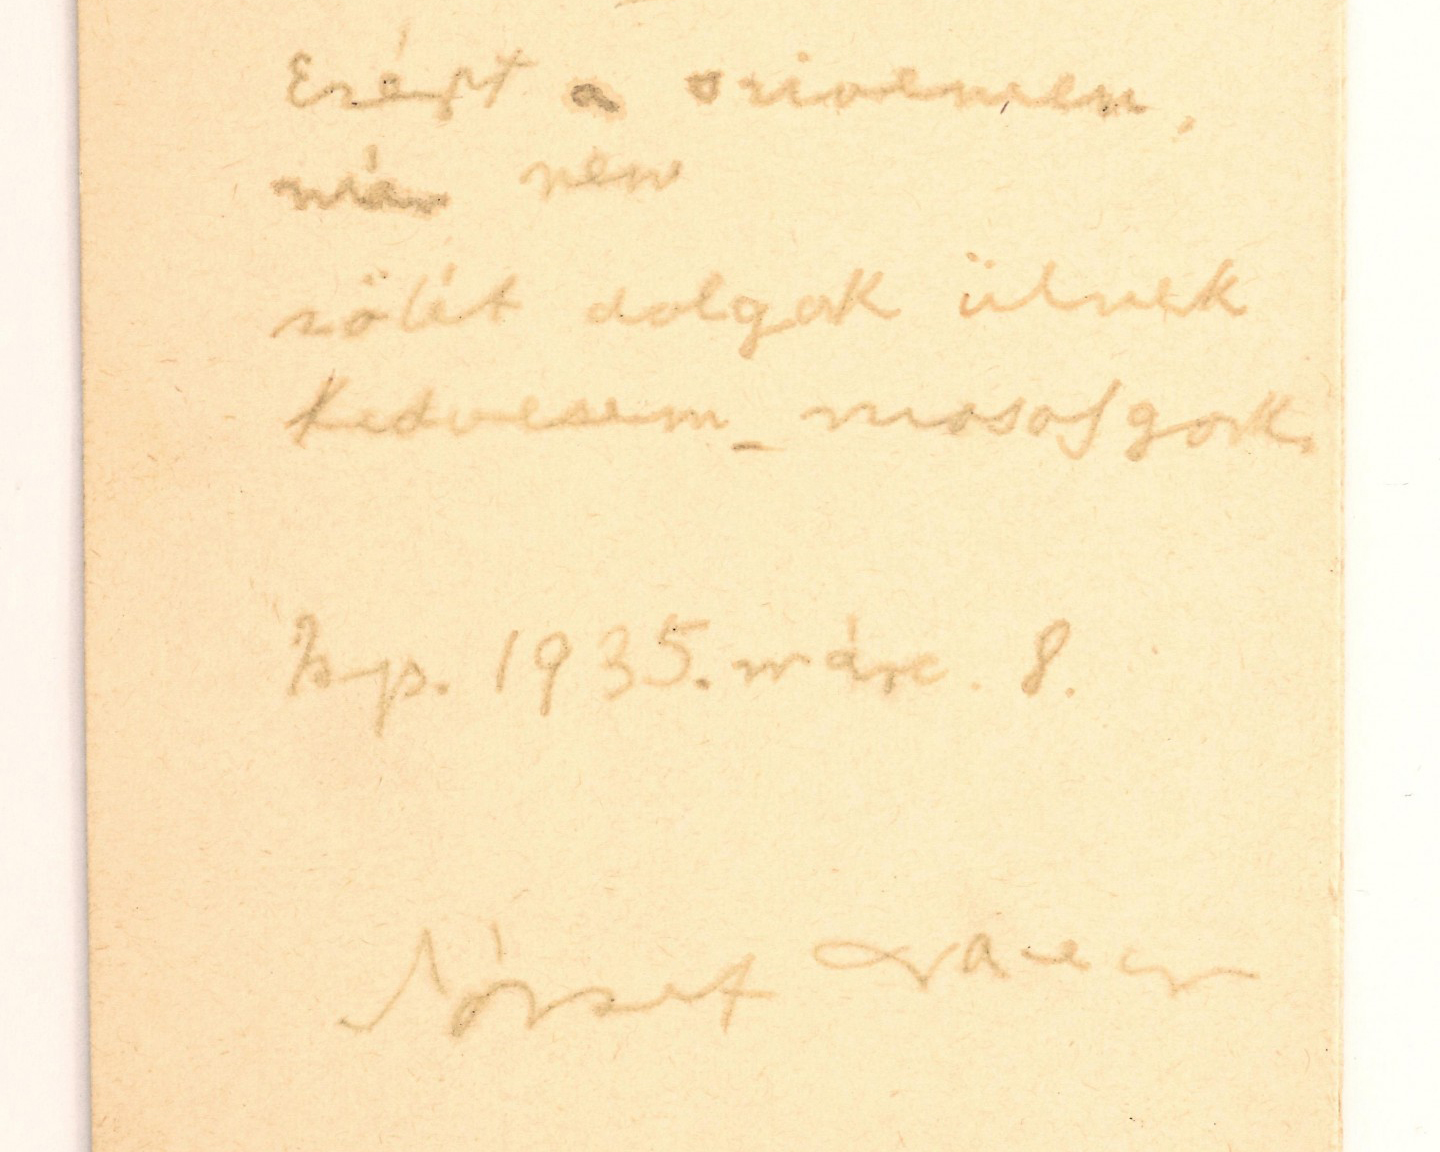 Ezért a szivemen,
már nem
sötét dolgok ülnek
Kedvesem_ mosolygok.
Bp. 1935. márc. 8.
József